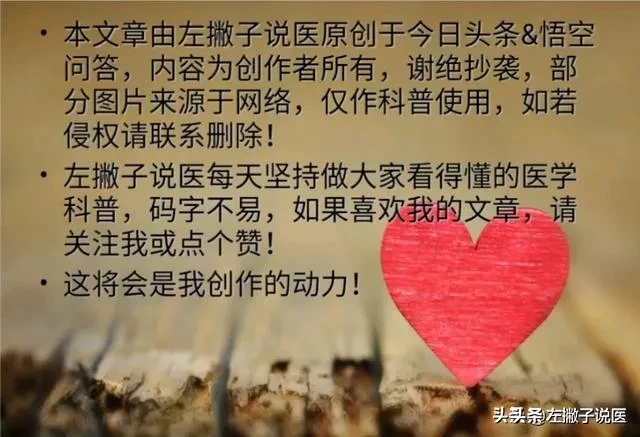 • 本文章由左撇子说医原创于今日头条&悟空
问答，内容为创作者所有，谢绝抄袭，部
分图片来源于网络，仅作科普使用，如若
侵权请联系删除！
• 左撇子说医每天坚持做大家看得懂的医学
科普，码字不易，如果喜欢我的文章，请
关注我或点个赞！
• 这将会是我创作的动力！
头条@左撇子说医